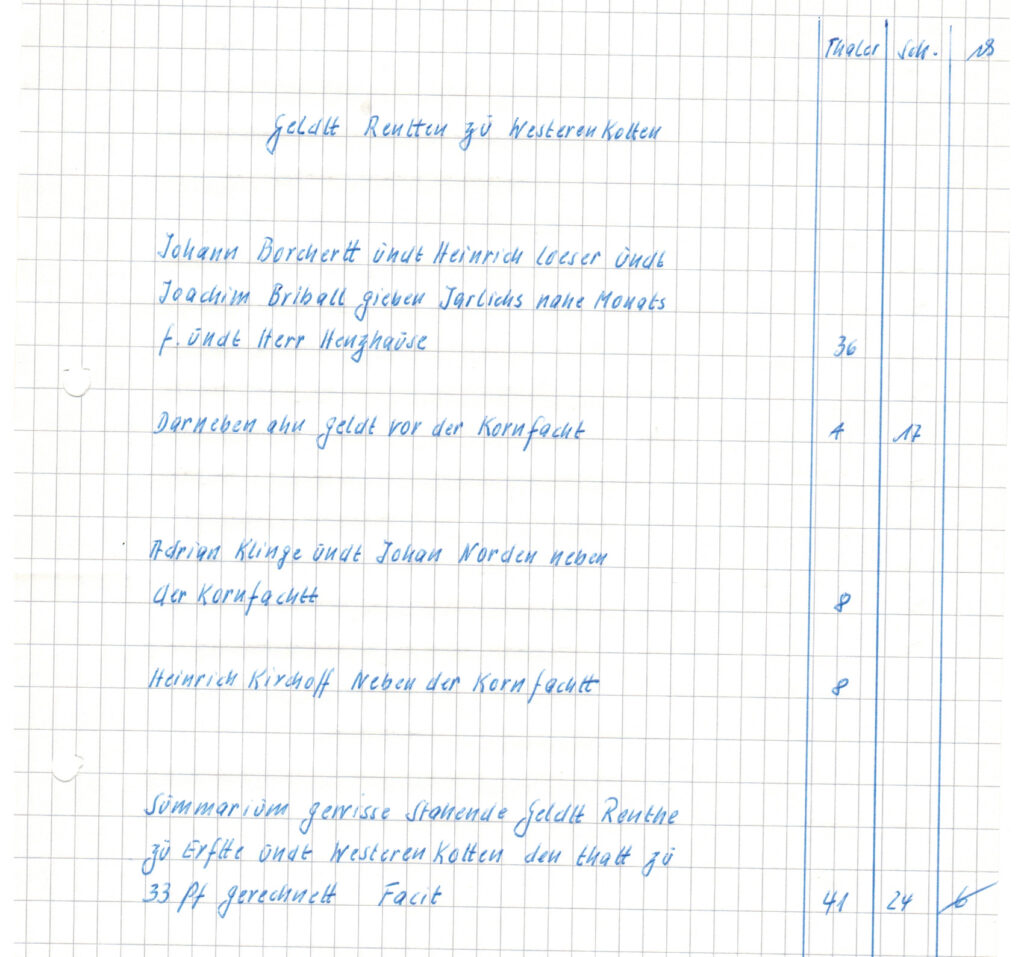 Thaler Sch. ₰
Geldtt Rentten zü Westerenkotten
Johann Borchertt ündt Heinrich Loeser ündt
Joachim Briball gieben Jarlichs nahe Monats
f. ündt Herr Henzhaüse 36
Darneben ahn geldt vor der Kornfacht 1 17
Adrian Klinge ündt Johan Norden neben
der Kornfachtt 8
Heinrich Kirchoff Neben der Kornfachtt 8
Sümmariüm gewisse stahende Geldtt Renthe
zü Erffte ündt Westerenkotten den thatt zü
33 Pf gerechnett Facit 41 24 6